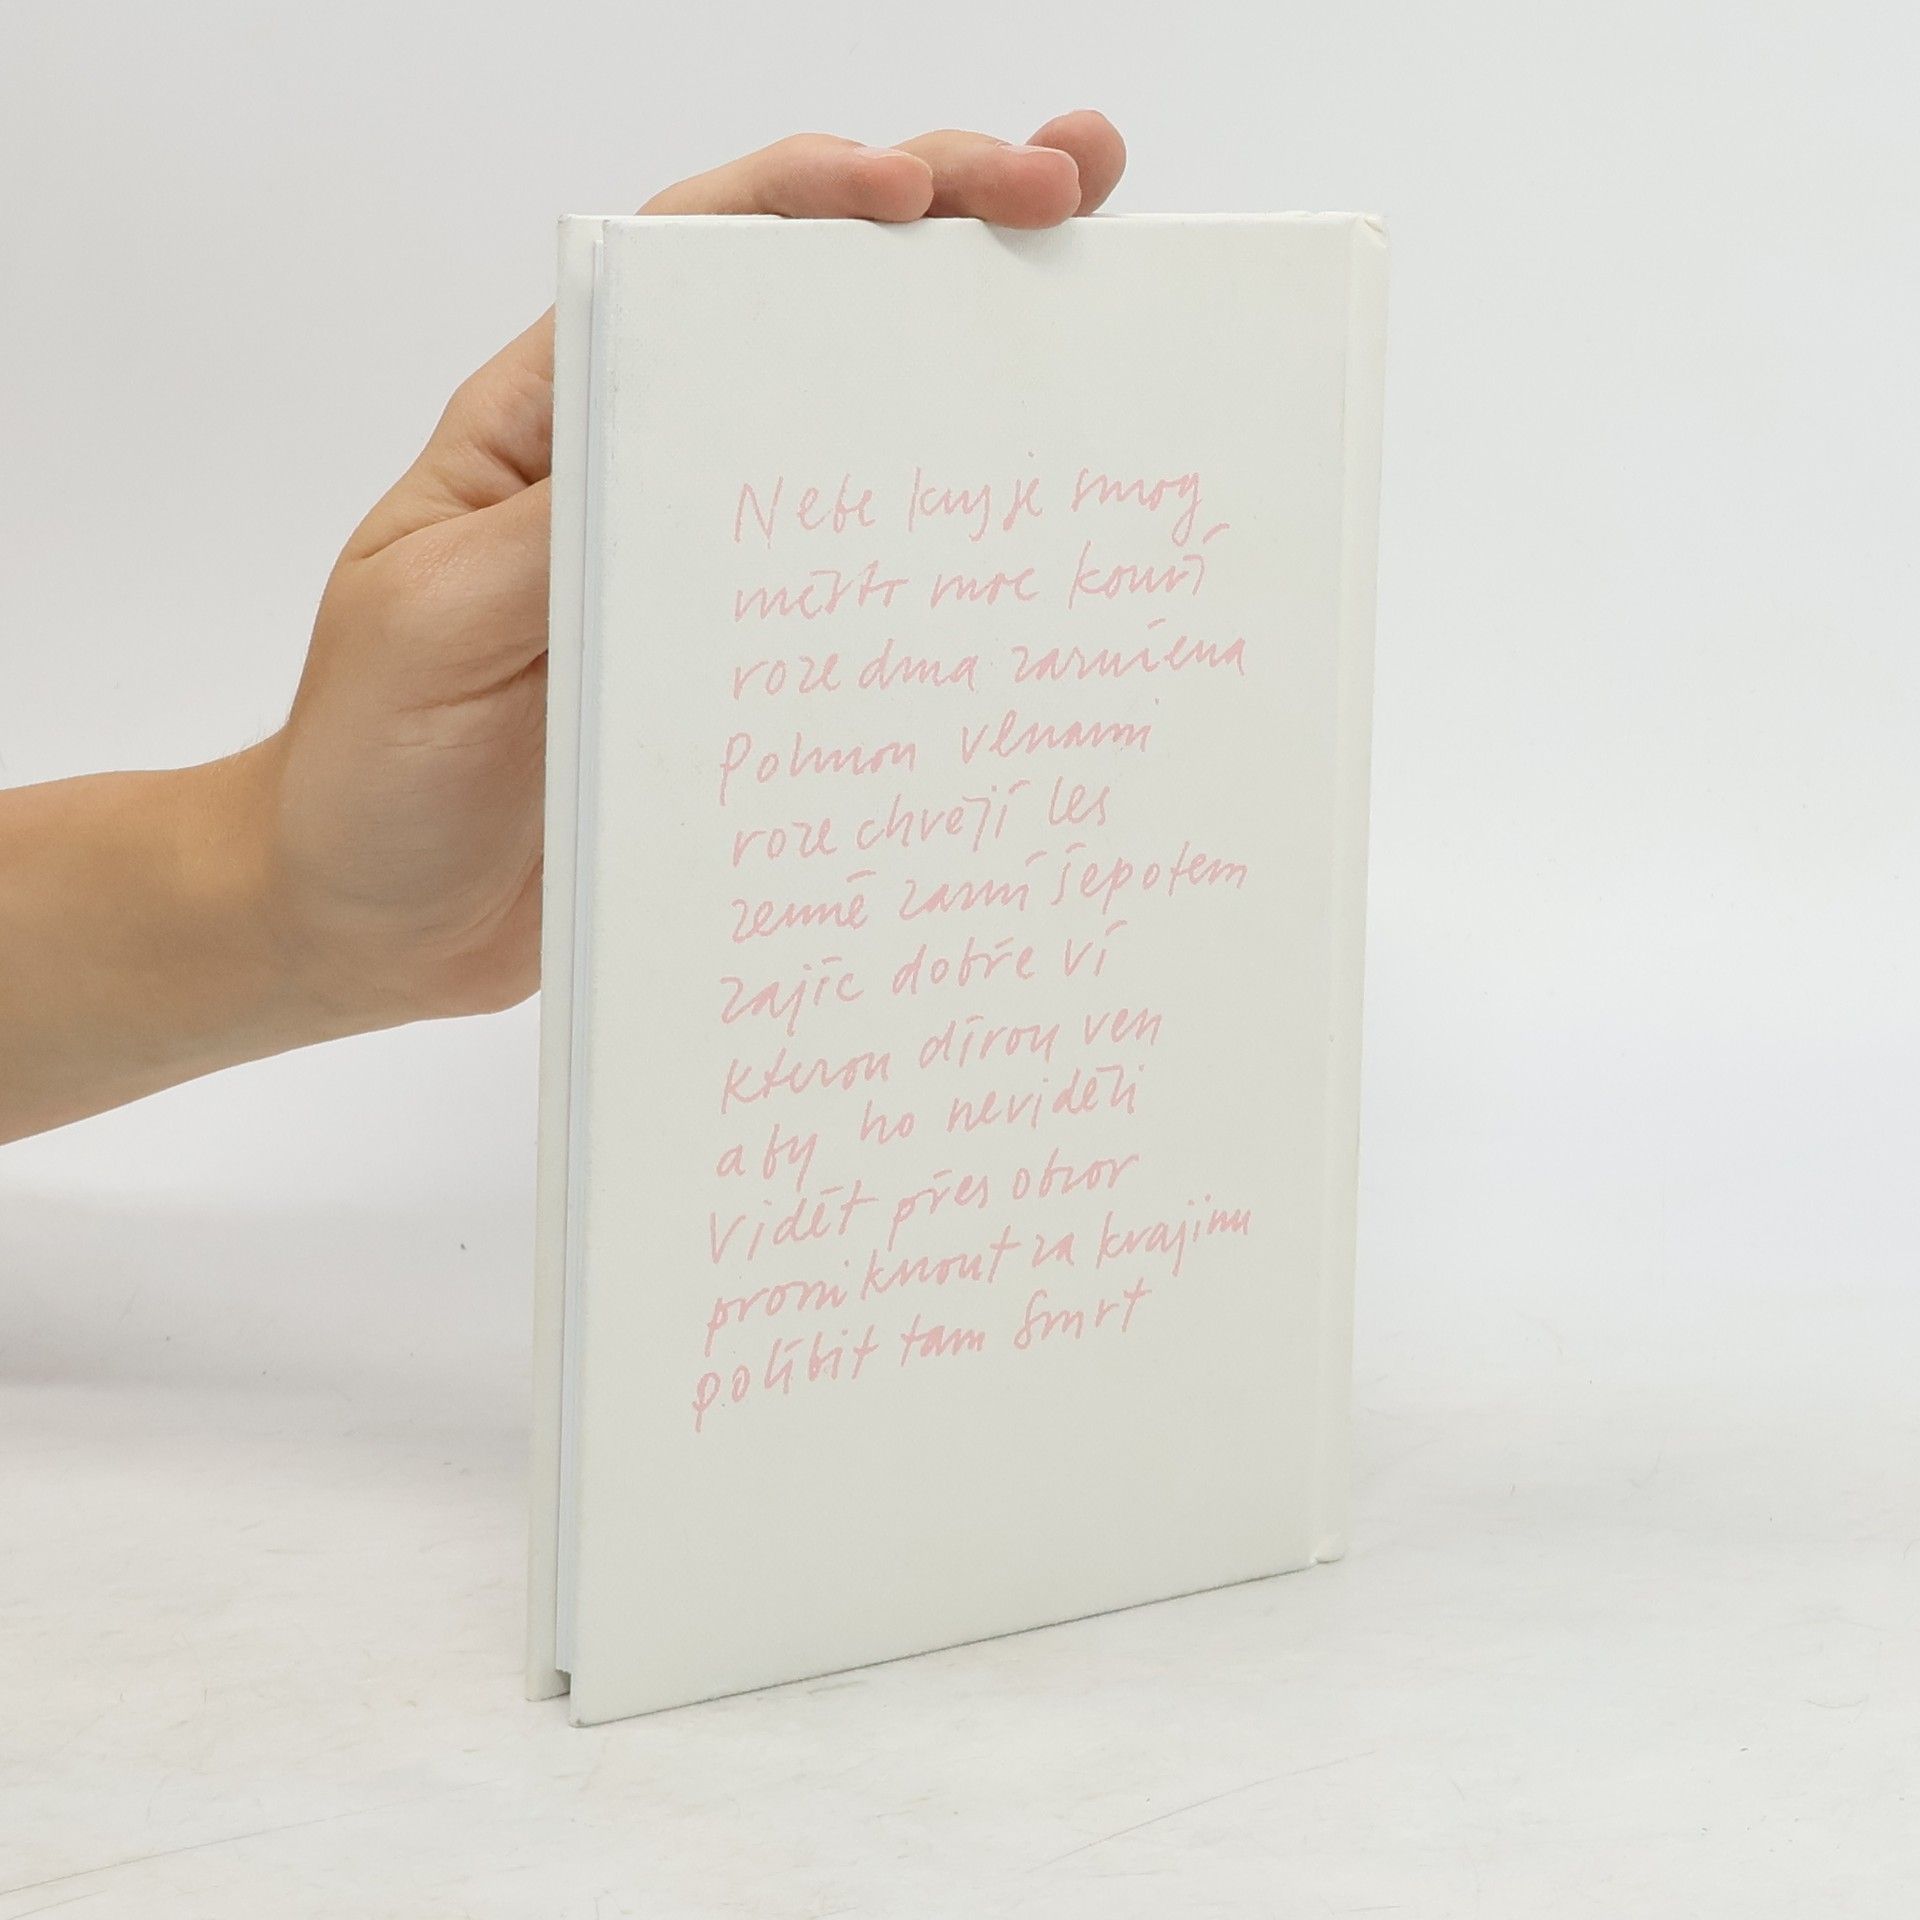 Nebe kryje smog
město moře kouří
rozedma zaručena
Pohnou vlnami
rozechvějí les
země zazní šepotem
zajíc dobře ví
kterou dírou ven
aby ho neviděli
Vidět přes obzor
proniknout za krajinu
políbit tam Smrt